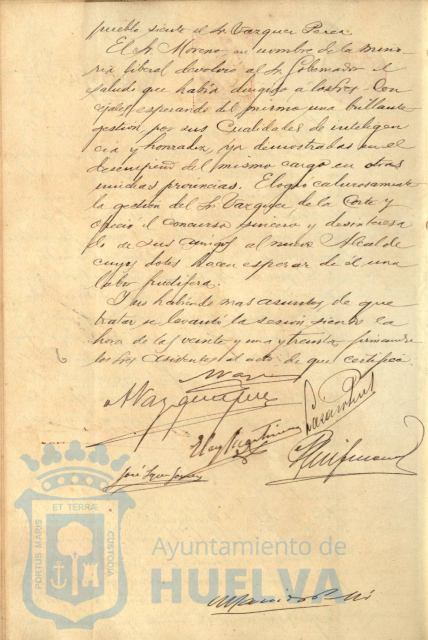 pueblo siente el Sr. Vazquez Perez.
El Sr. Moreno en nombre de la mino-
ria liberal devolvió al Sr. Gobernador el
saludo que habia dirigido a los Sres. Con-
cejales, esperando del mismo una brillante
gestión, por sus cualidades de inteligen-
cia y honradez, ya demostradas en el
desempeño del mismo cargo en otras
muchas provincias. Elogió calurosamente
la gestión del Sr. Vazquez de la Corte y
ofreció el concurso sincero y desinteresa-
do de sus amigos al nuevo Alcalde
cuyos dotes hacen esperar de él una
labor fructifera.
Y no habiendo mas asuntos de que
tratar se levantó la sesión siendo la
hora de las veinte y una y treinta, firmando
los Sres. asistentes al acto de que certifico.
ET TERRÆ
PORTUS MARIS
CUSTODIA
Ayuntamiento de
HUELVA